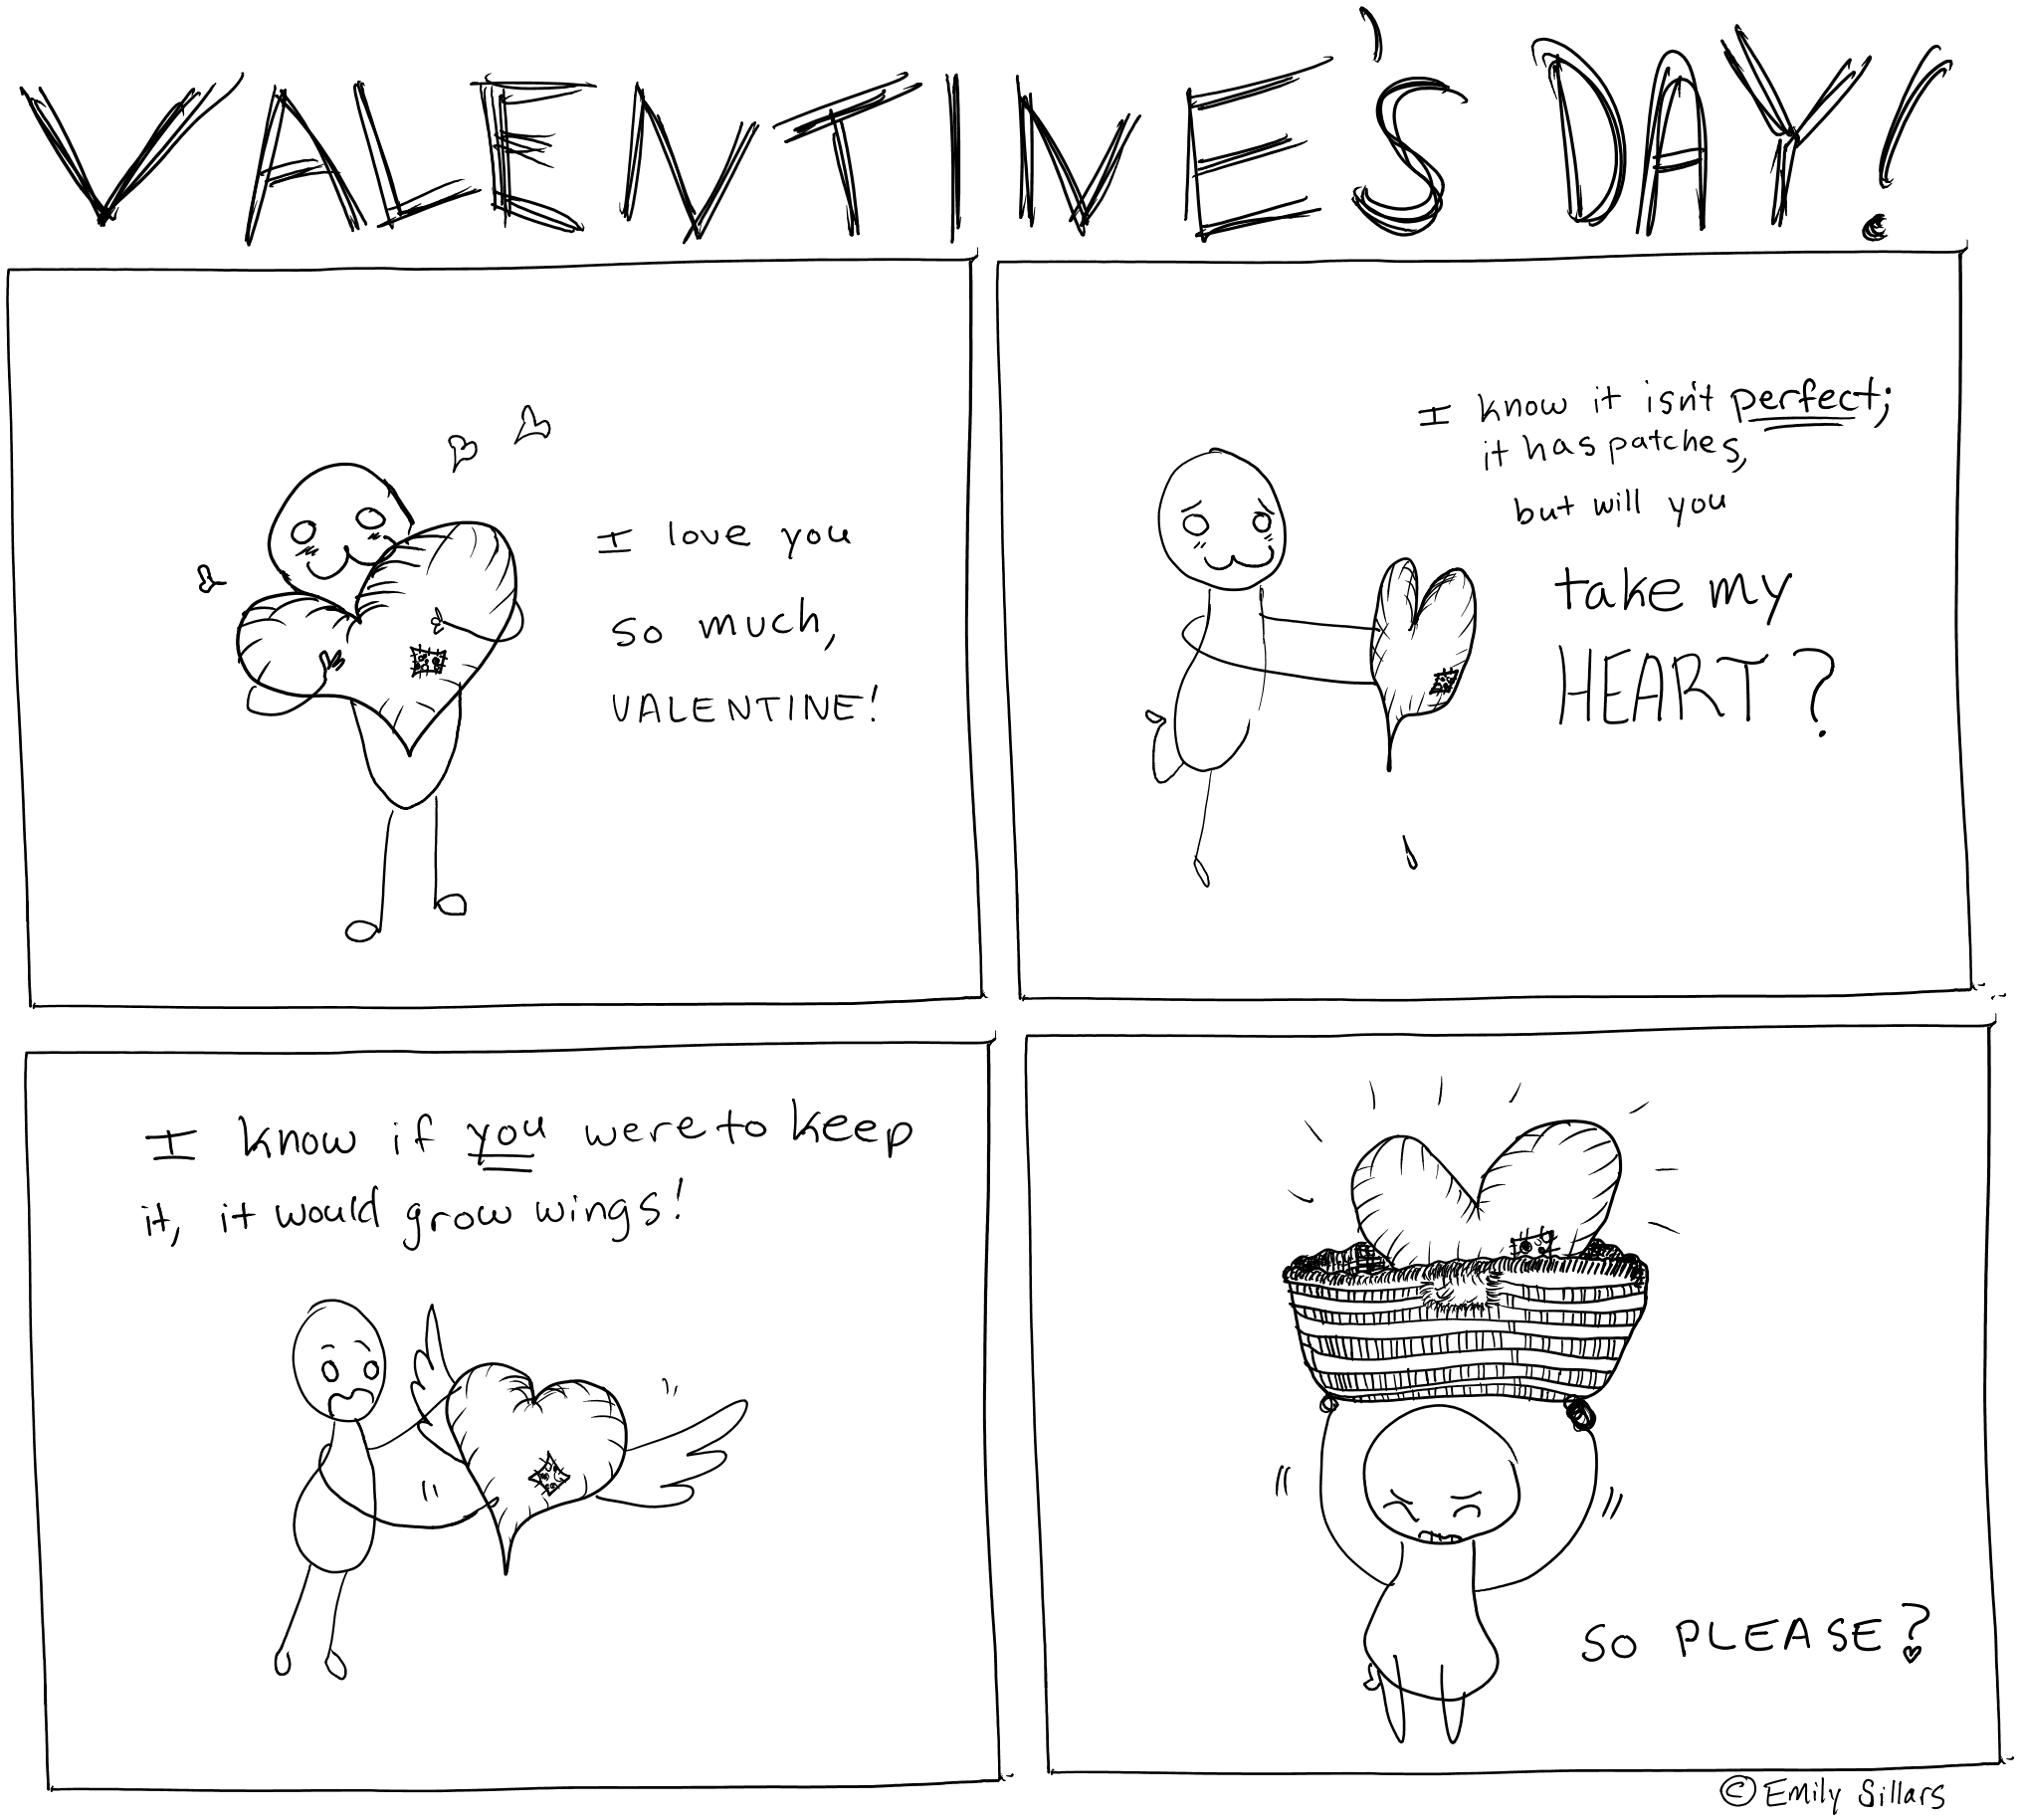 VALENTINE'S DAY!
I love you
so much,
VALENTINE!
I know it isn't perfect;
it has patches,
but will you
take my
HEART?
I know if you were to keep
it, it would grow wings!
SO PLEASE?
© Emily Sillars